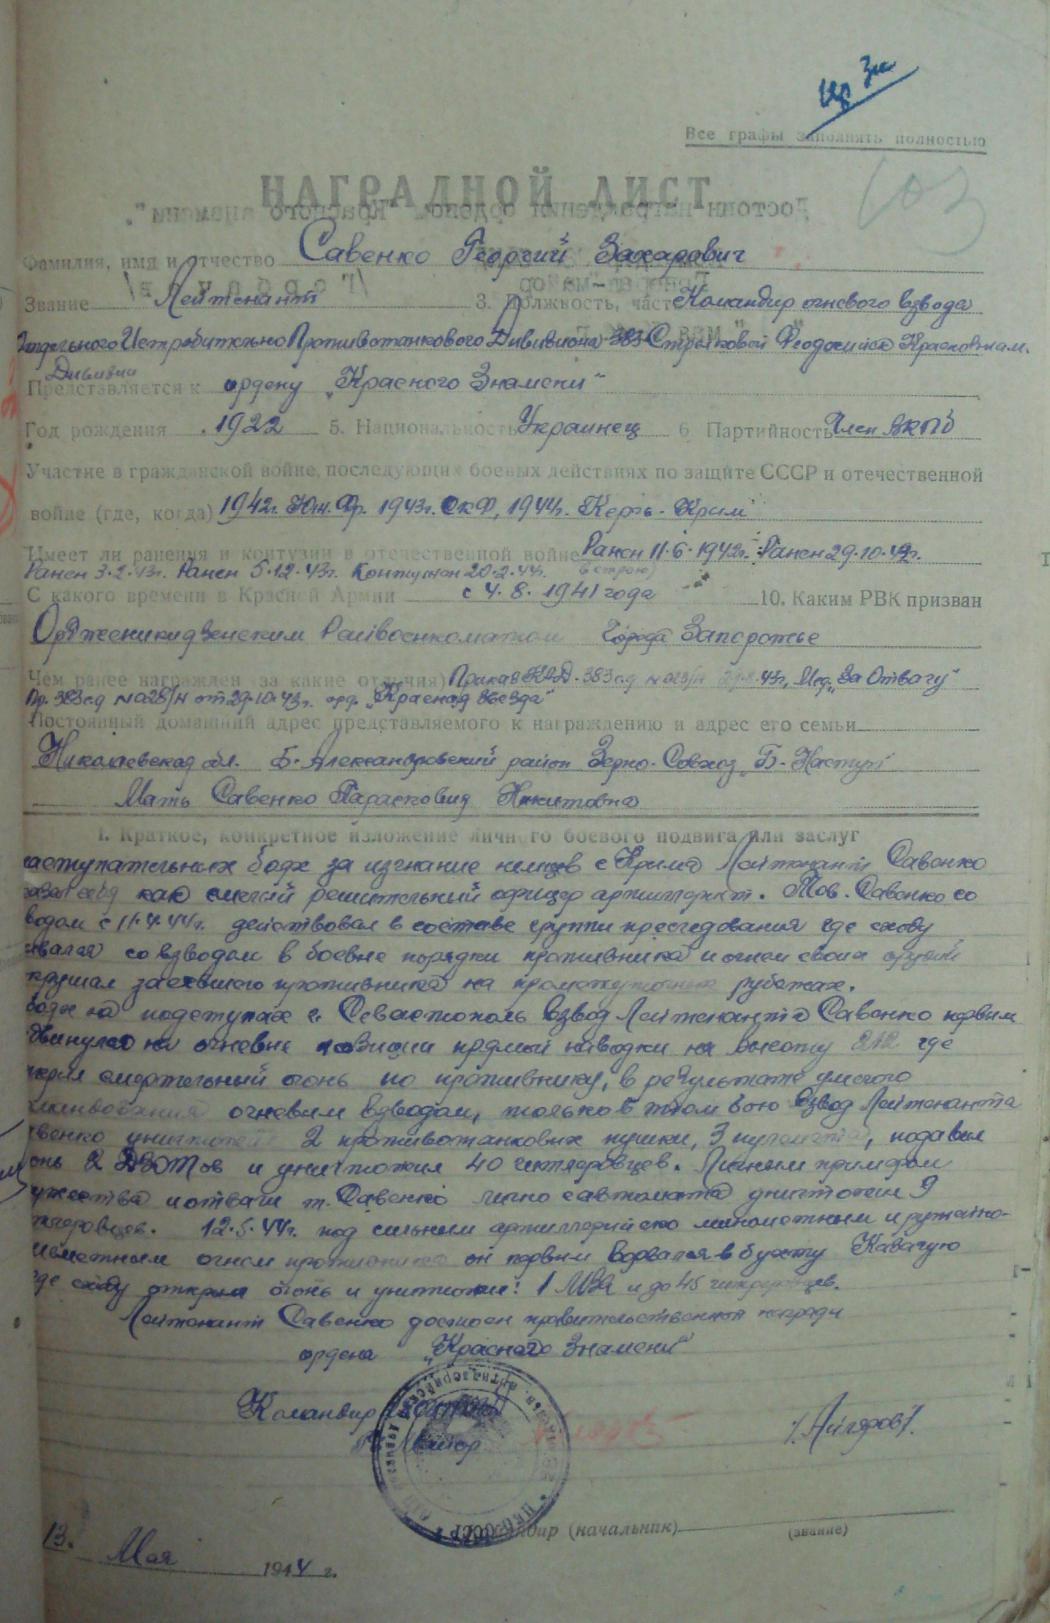 Все графы заполнять полностью
103
НАГРАДНОЙ ЛИСТ
Фамилия, имя и отчество Савенко Георгий Захарович
Звание Лейтенант 3. Должность, часть Командир огневого взвода
Отдельного Истребительно Противотанкового Дивизиона 383 Стрелковой Феодосийск Краснознам.
Дивизии
Представляется к ордену „Красного Знамени"
Год рождения 1922 5. Национальность Украинец 6. Партийность Член ВКПб
Участие в гражданской войне, последующих боевых действиях по защите СССР и отечественной
войне (где, когда) 1942г. Юж. Фр. 1943г. СКФ, 1944г. Керчь-Крим
Имеет ли ранения и контузии в отечественной войне Ранен 11.6.1942г. Ранен 29.10.42г.
Ранен 3.2.43г. Ранен 5.12.43г. Контужен 20.2.44г. в строю)
С какого времени в Красной Армии с 4.8.1941 года 10. Каким РВК призван
Орджоникидзевским Райвоенкоматом города Запорожье
Чем ранее награжден (за какие отличия) Приказ 383 с.д 43г. Мед. „За Отвагу"
Пр. 383 с.д №028/н от 29.10.43г. орд. „Красная Звезда"
Постоянный домашний адрес представляемого к награждению и адрес его семьи
Николаевская обл. Б-Александровский район Зерно-Совхоз
Мать Савенко Парасковия Никитовна
I. Краткое, конкретное изложение личного боевого подвига или заслуг
наступательных боях за изгнание немцев с Крима Лейтенант Савенко
себя как смелий решительний офицер артиллерист. Тов. Савенко со
взводом с 11.4.44г. действовал в составе группи преследования где сходу
со взводом в боевие порядки противника и огнем своих орудий
засевшего противника на промежуточних рубежах.
боях на подступах г. Севастополь взвод Лейтенанта Савенко первим
на огневие позиции прямой наводки на висоту 212 где
смертельний огонь по противнику, в результате умелого
командования огневим взводом, только в этом бою взвод Лейтенанта
Савенко уничтожил 2 противотанкових пушки, 3 пулемета, подавил
огонь 2 ДЗОТов и уничтожил 40 гитлеровцев. Личним примером
мужества и отваги т. Савенко лично с автомата уничтожил 9
гитлеровцев. 12.5.44г. под сильним артиллерийско минометним и ружейно-
пулеметним огнем противника он первим ворвался в бухту Казачую
где сходу открил огонь и уничтожил: 1 и до 45 гитлеровцев.
Лейтенант Савенко достоен правительственной награди
ордена „Красного Знамени"
Командир
Майор
Командир (начальник) (звание)
13. Мая 1944 г.